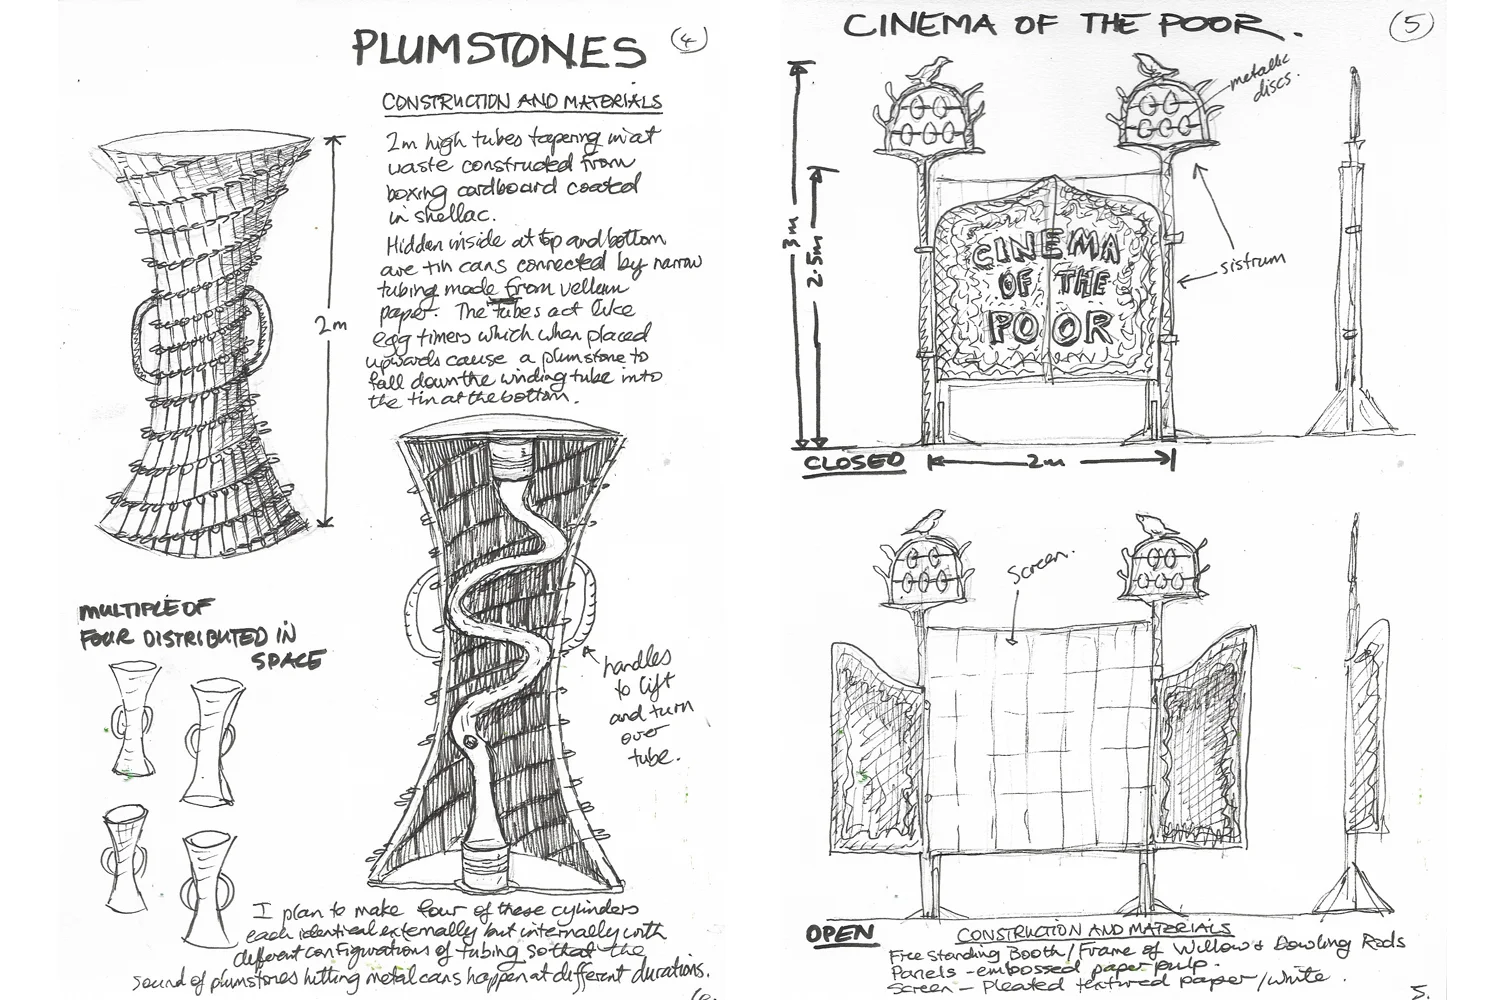 PLUMSTONES
4
CONSTRUCTION AND MATERIALS
2m high tubes tapering in at
waste constructed from
boxing cardboard coated
in shellac.
Hidden inside at top and bottom
are tin cans connected by narrow
tubing made from vellum
paper. The tubes act like
egg timers which when placed
upwards cause a plumstone to
fall down the winding tube into
the tin at the bottom.
2m
MULTIPLE OF
FOUR DISTRIBUTED IN
SPACE
handles
to lift
and turn
over
tube.
I plan to make four of these cylinders
each identical externally but internally with
different configurations of tubing so that the
sound of plumstones hitting metal cans happen at different durations.
CINEMA OF THE POOR.
5
metallic
discs.
3m
2.5m
CINEMA
OF THE
POOR
sistrum
CLOSED
2m
Screen.
OPEN
CONSTRUCTION AND MATERIALS
Free Standing Booth/Frame of Willow & Dowling Rods
Panels - embossed paper pulp.
Screen - Pleated textured paper/white.
5.